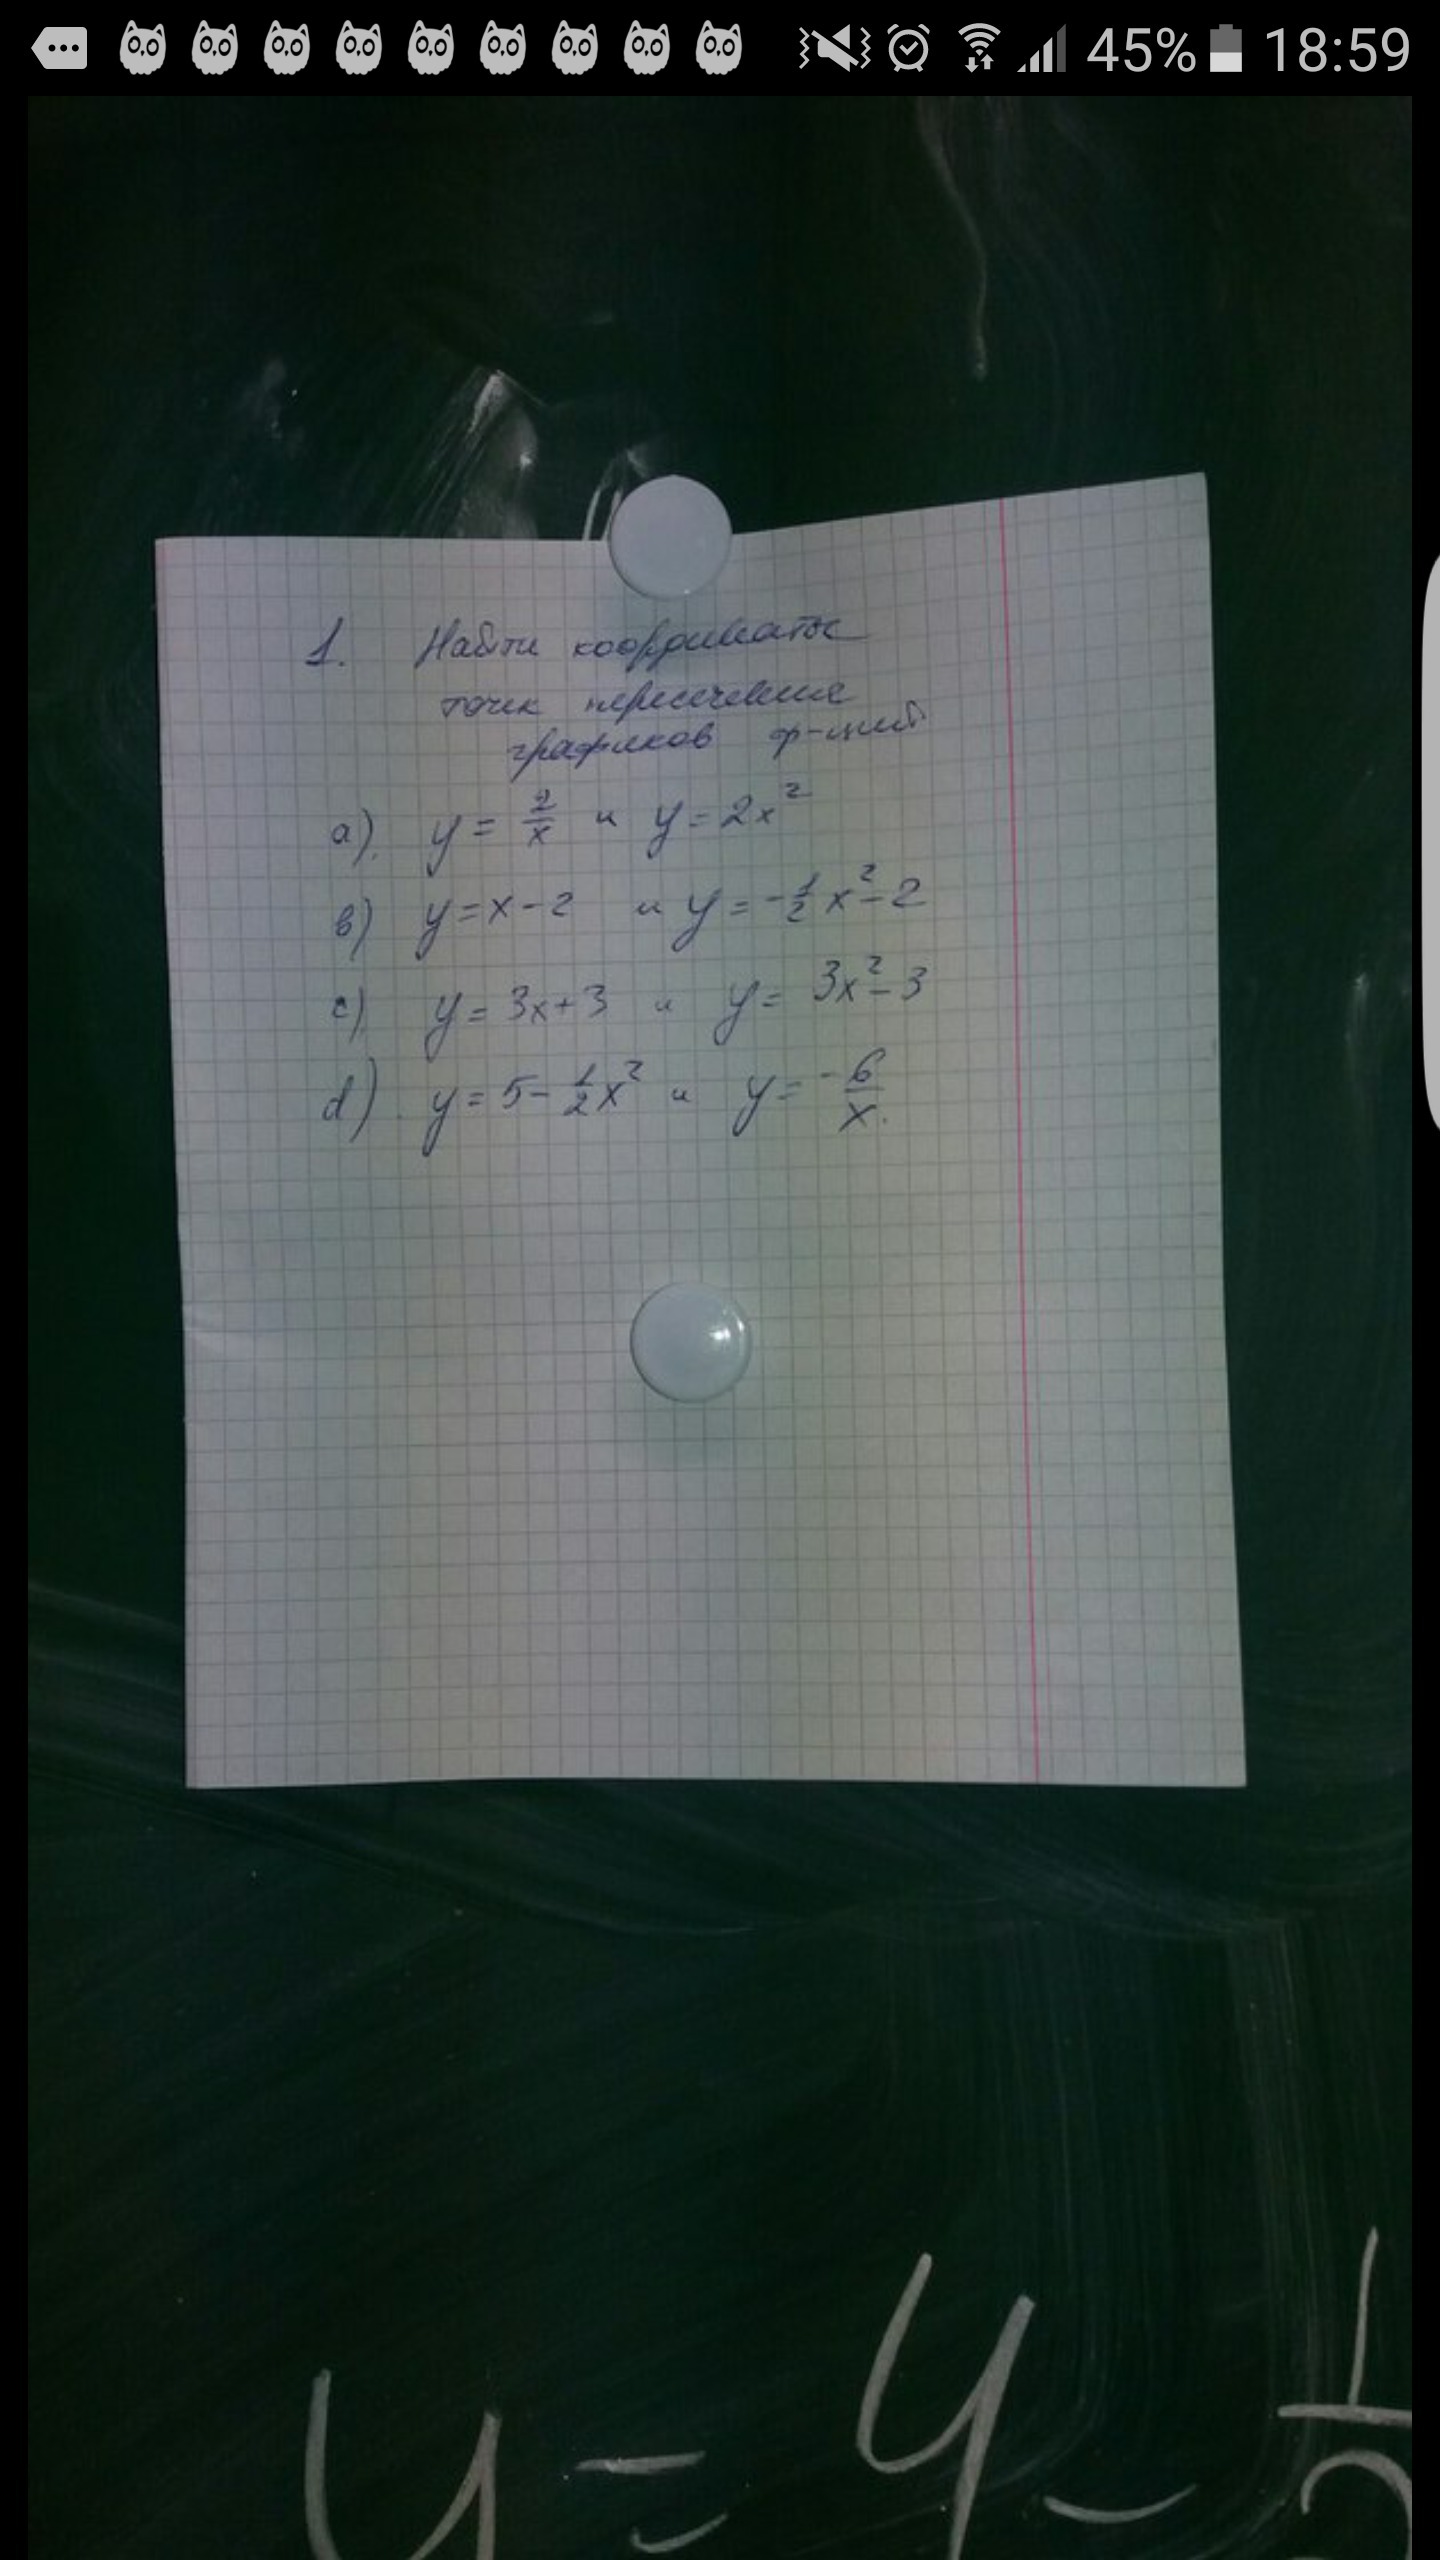 45% 18:59
1. Найти координаты
точек пересечения
графиков ф-ций
a). y = 2/x и y = 2x²
в) y = x - 2 и y = -1/2 x² - 2
c) y = 3x + 3 и y = 3x² - 3
d). y = 5 - 1/2 x² и y = -6/x.
y = 4 - 1